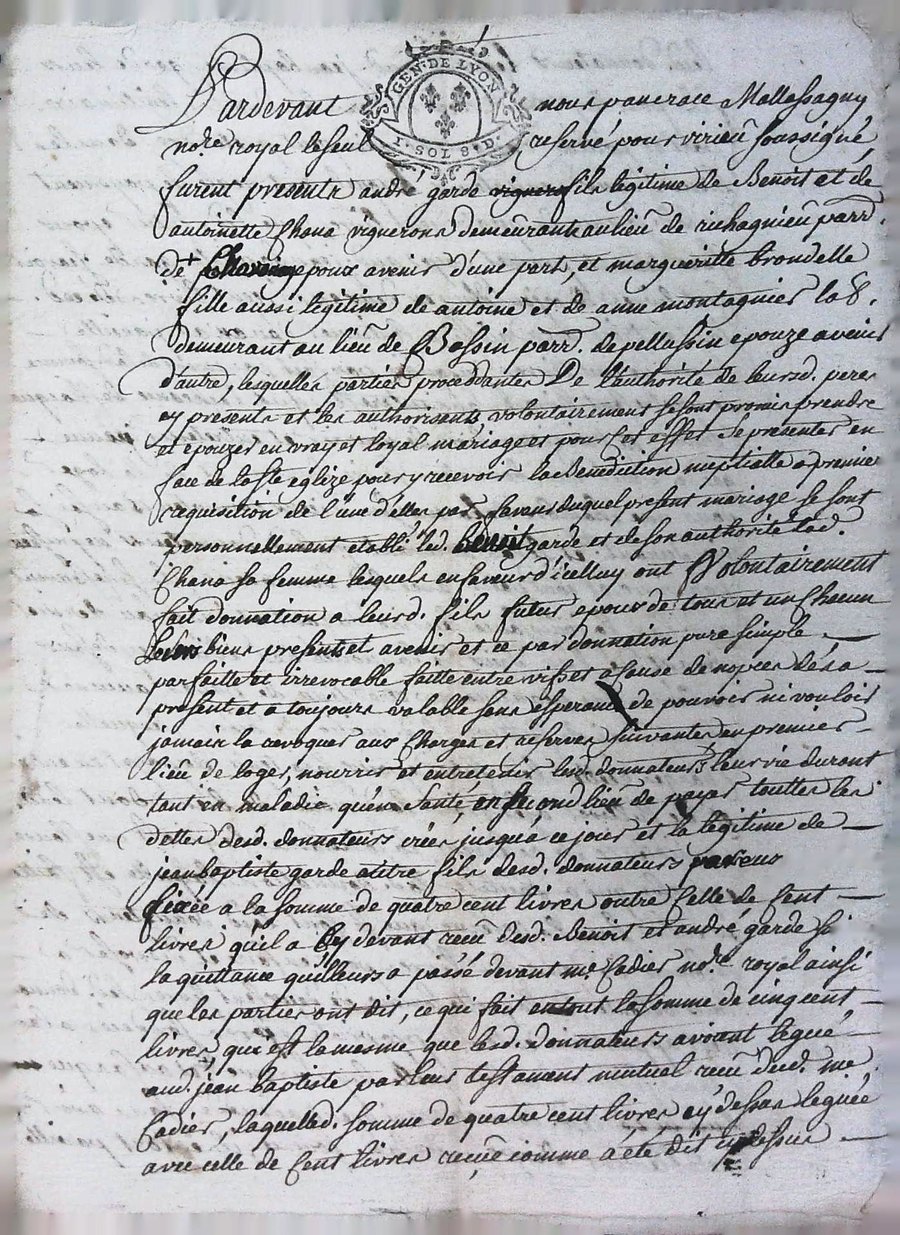 GEN. DE LYON
1. SOL 8. D.
Pardevant nous pancrace Mallessagny
no.re royal le seul reservé pour virieu soussigné,
furent presents andré garde vigneron fils légitime de Benoit et de
antoinette Chana vignerons demeurants au lieu de richagnieu parr.
de Chavanay epoux avenir d'une part, et margueritte brondelle
fille aussi legitime de antoine et de anne montagnier la d.
demeurant au lieu de Bossin parr. de pellussin epouze avenir
d'autre, lesquelles parties procedantes De l'authorité de leursd. peres
cy presents et les authorisants volontairement se sont promis prendre
et epouzer en vray et loyal mariage et pour cet effet se presenter en
face de la ste eglize pour y recevoir la Benediction nuptialle a premiere
requisition de l'une d'elles par faveur duquel present mariage se sont
personnellement etabli led. Benoit garde et de son authorité lad.
Chana sa femme lesquels en faveur d'icelluy ont Volontairement
fait donnation a leurd. fils futur epoux de tous et un Chacun
Leurs biens presents et avenir et ce par donnation pure simple
parfaitte et irrevocable faitte entre vifs et a cause de nopces des a
present et a toujours valable sans esperance de pouvoir ni vouloir
jamais la revoquer aux Charges et reserves suivantes en premier
lieu de loger, nourrir et entretenir lesd. donnateurs leur vie durant
tant en maladie qu'en santé, en second lieu de payer touttes les
dettes desd. donnateurs crées jusqu'a ce jour et la légitime de
jean baptiste garde autre fils desd. donnateurs par eux
fixée a la somme de quatre cent livres outre Celle de Cent
livres qu'il a Cy devant recu desd. Benoit et andré garde si
la quittance qu'il leurs a passé devant me. Cadier no.re royal ainsi
que les parties ont dit, ce qui fait en tout la somme de cinq cent
livres, qui est la mesme que lesd. donnateurs avoient legué
aud. jean baptiste par leur testament mutuel recu dud. me.
Cadier, laquelled. somme de quatre cent livres cy dessus leguée
avec celle de Cent livres recue comme a été dit cy dessus